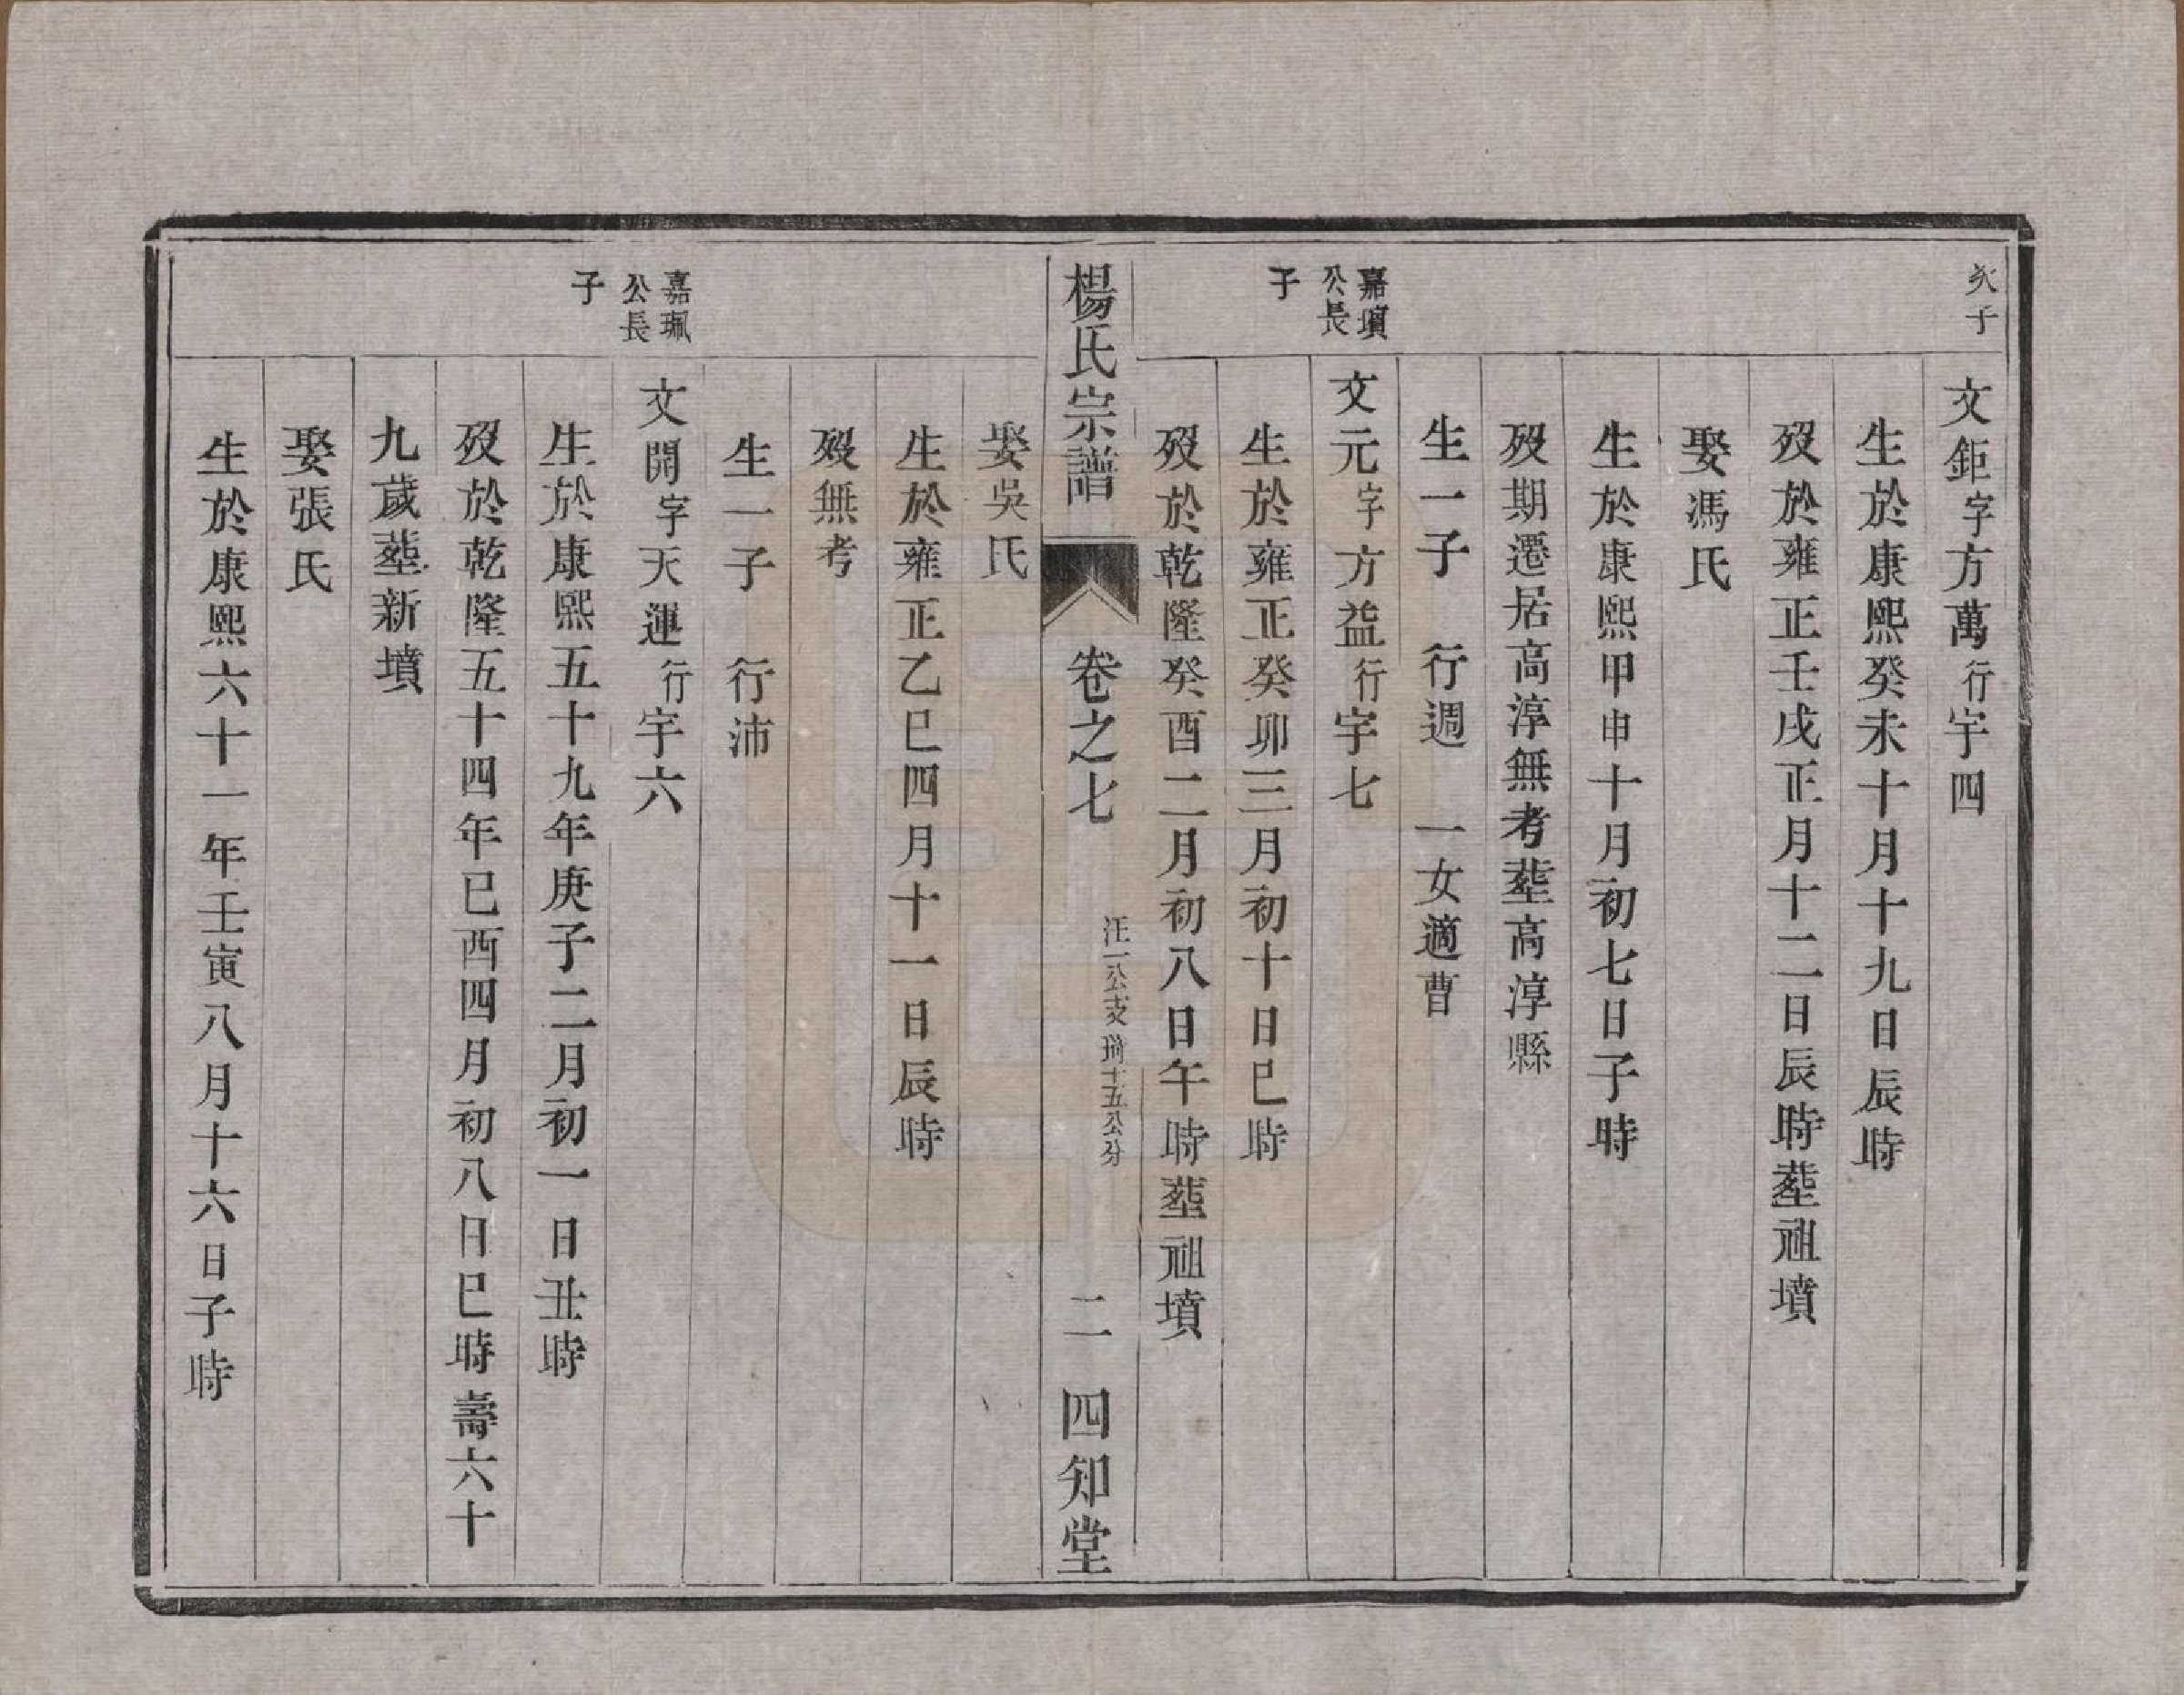 次子
文鉅字方萬行宇四
生於康熙癸未十月十九日辰時
歿於雍正壬戌正月十二日辰時塟祖墳
娶馮氏
生於康熙甲申十月初七日子時
歿期遷居高淳無考塟高淳縣
生一子　行週　一女適曹
嘉塤公長子
文元字方益行宇七
生於雍正癸卯三月初十日巳時
歿於乾隆癸酉二月初八日午時塟祖墳
楊氏宗譜　卷之七　汪一公支　十五公分　二　四知堂
娶吳氏
生於雍正乙巳四月十一日辰時
歿無考
生一子　行沛
嘉珮公長子
文開字天運行宇六
生於康熙五十九年庚子二月初一日丑時
歿於乾隆五十四年己酉四月初八日巳時壽六十
九歲塟新墳
娶張氏
生於康熙六十一年壬寅八月十六日子時